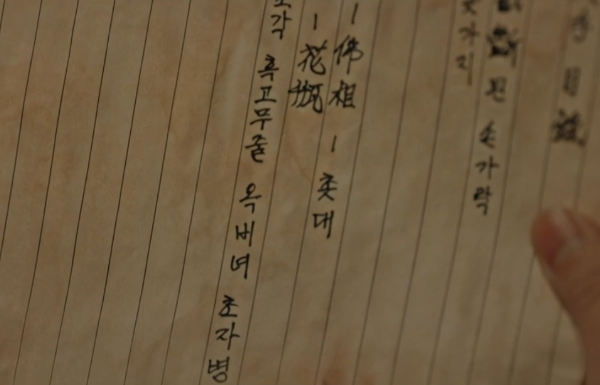 目
된 손가락
가지
一佛相 一촛대
一花瓶
각 흑고무줄 옥비녀 초자병